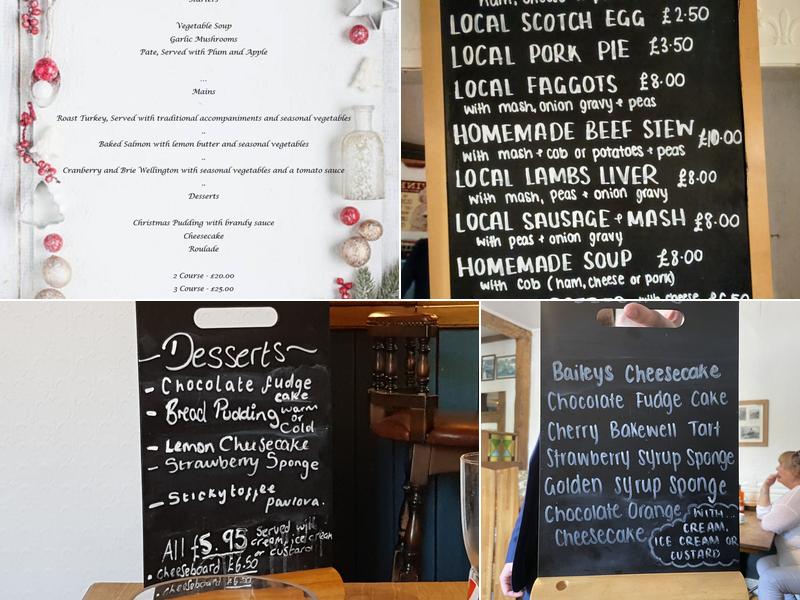 Starters
Vegetable Soup
Garlic Mushrooms
Pate, Served with Plum and Apple
...
Mains
Roast Turkey, Served with traditional accompaniments and seasonal vegetables
..
Baked Salmon with lemon butter and seasonal vegetables
..
Cranberry and Brie Wellington with seasonal vegetables and a tomato sauce
..
Desserts
Christmas Pudding with brandy sauce
Cheesecake
Roulade
2 Course - £20.00
3 Course - £25.00
LOCAL SCOTCH EGG £2.50
LOCAL PORK PIE £3.50
LOCAL FAGGOTS £8.00
with mash, onion gravy + peas
HOMEMADE BEEF STEW £10.00
with mash + cob or potatoes + peas
LOCAL LAMBS LIVER £8.00
with mash, peas + onion gravy
LOCAL SAUSAGE + MASH £8.00
with peas + onion gravy
HOMEMADE SOUP £8.00
with cob (ham, cheese or pork)
with cheese £6.50
Desserts
- Chocolate fudge cake
- Bread Pudding warm or Cold
- Lemon Cheesecake
- Strawberry Sponge
- Sticky toffee pavlova.
All £5.95 Served with cream, ice cream or custard
• cheeseboard £6.50
• cheeseboard £6.50
Baileys Cheesecake
Chocolate Fudge Cake
Cherry Bakewell Tart
Strawberry Syrup Sponge
Golden Syrup Sponge
Chocolate Orange
Cheesecake
WITH...
CREAM,
ICE CREAM OR
CUSTARD